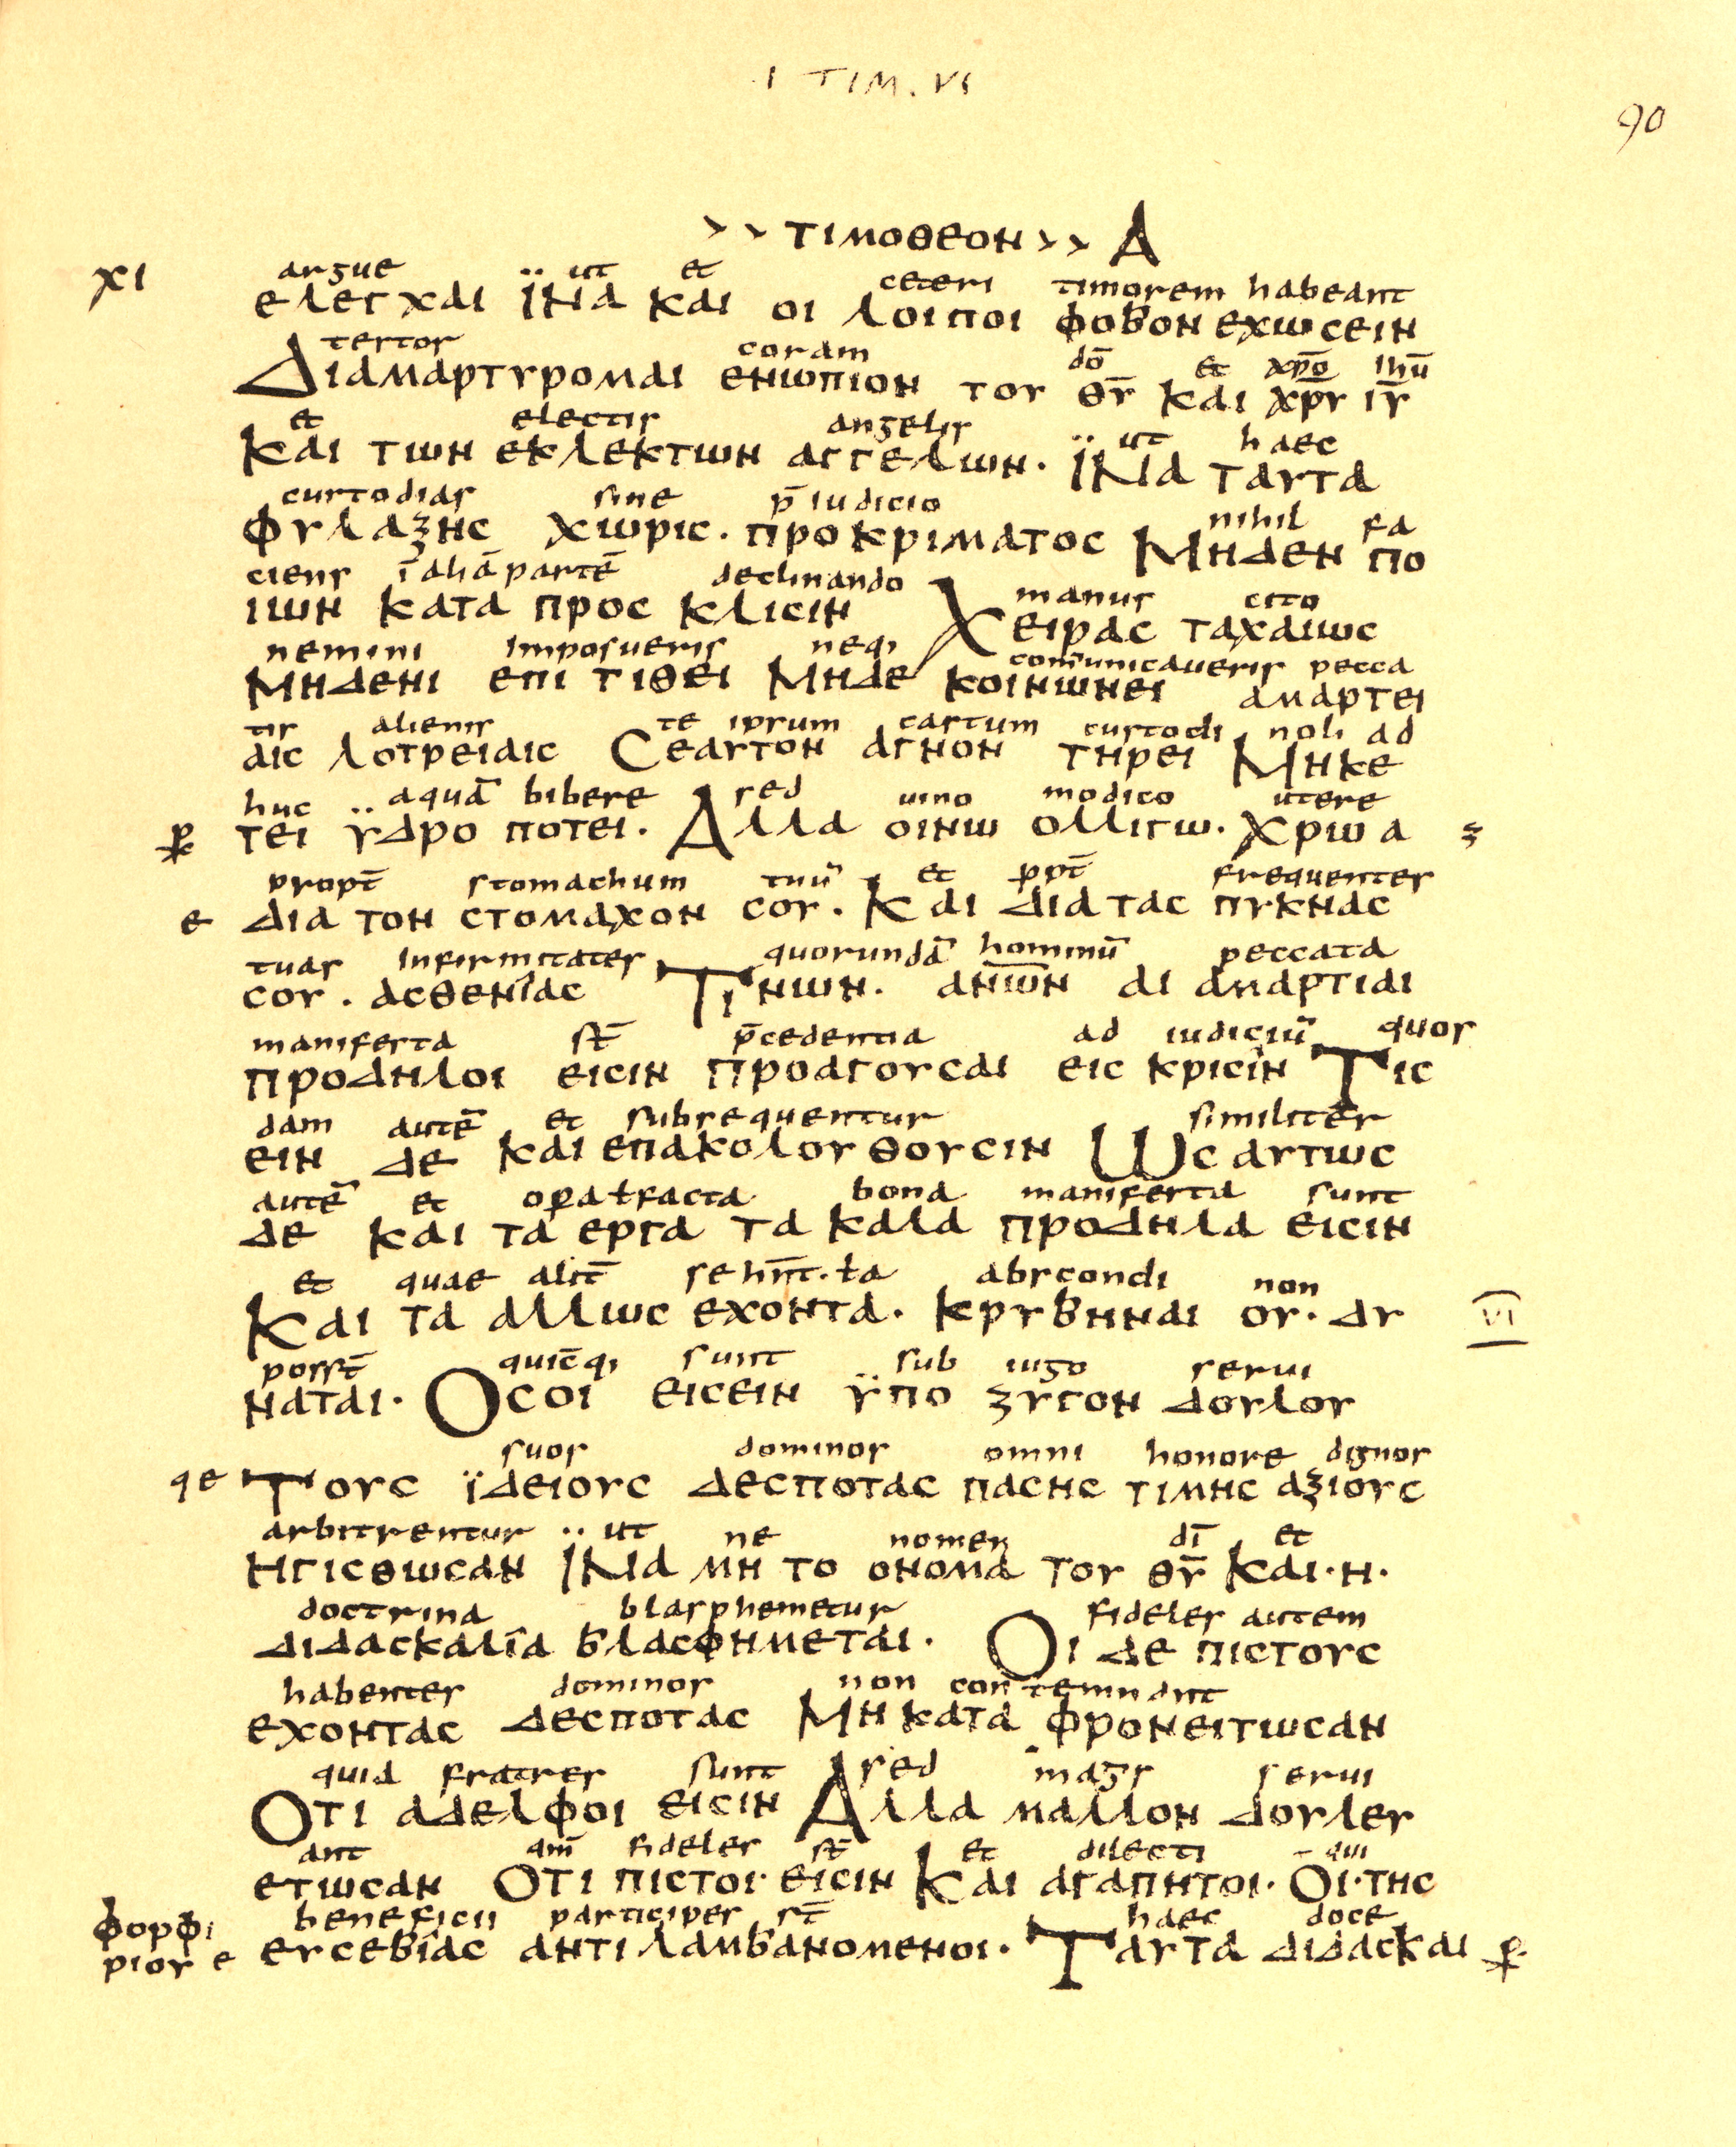 I TIM. VI
90
› › ΤΙΜΟΘΕΟΝ › › Α
argue ut et ceteri timorem habeant
XI ΕΛΕΓΧΑΙ ΪΝΑ ΚΑΙ ΟΙ ΛΟΙΠΟΙ ΦΟΒΟΝ ΕΧΩCΕΙΝ
testor coram dō et xpō ihū
ΔΙΑΜΑΡΤΥΡΟΜΑΙ ΕΝΩΠΙΟΝ ΤΟΥ Θ̅Υ̅ ΚΑΙ Χ̅Ρ̅Υ̅ Ι̅Υ̅
et electis angelis ut haec
ΚΑΙ ΤΩΝ ΕΚΛΕΚΤΩΝ ΑΓΓΕΛΩΝ· ΪΝΑ ΤΑΥΤΑ
custodias sine p̄iudicio nihil fa
ΦΥΛΑΞΗC ΧΩΡΙC· ΠΡΟΚΡΙΜΑΤΟC ΜΗΔΕΝ ΠΟ
ciens ī aliā partē declinando manus cito
ΙΩΝ ΚΑΤΑ ΠΡΟC ΚΛΙCΙΝ ΧΕΙΡΑC ΤΑΧΑΙΩC
nemini imposueris neq; com̄unicaveris pecca
ΜΗΔΕΝΙ ΕΠΙ ΤΙΘΕΙ ΜΗΔΕ ΚΟΙΝΩΝΕΙ ΑΜΑΡΤΕΙ
tis alienis te ipsum castum custodi noli ad
ΑΙC ΛΟΤΡΕΙΑΙC CΕΑΥΤΟΝ ΑΓΝΟΝ ΤΗΡΕΙ ΜΗΚΕ
huc aquā bibere sed uino modico utere
ΤΕΙ ΫΔΡΟ ΠΟΤΕΙ· ΑΛΛΑ ΟΙΝΩ ΟΛΛΙΓΩ· ΧΡΩ Α ξ
propt̄ stomachum tuū et ppt̄ frequenter
Ε ΔΙΑ ΤΟΝ CΤΟΜΑΧΟΝ CΟΥ· ΚΑΙ ΔΙΑ ΤΑC ΠΥΚΝΑC
tuas infirmitates quorundā hominū peccata
CΟΥ· ΑCΘΕΝΪΑC ΤΙΝΩΝ· Α̅Ν̅Ω̅Ν̅ ΑΙ ΑΜΑΡΤΙΑΙ
manifesta st̄ p̄cedentia ad iudiciū quos
ΠΡΟΔΗΛΟΙ ΕΙCΙΝ ΠΡΟΑΓΟΥCΑΙ ΕΙC ΚΡΙCΙΝ ΤΙC
dam autē et subsequentur similiter
ΕΙΝ ΔΕ ΚΑΙ ΕΠΑΚΟΛΟΥΘΟΥCΙΝ ΩC ΑΥΤΩC
autē et opera ł facta bona manifesta sunt
ΔΕ ΚΑΙ ΤΑ ΕΡΓΑ ΤΑ ΚΑΛΑ ΠΡΟΔΗΛΑ ΕΙCΙΝ
et quae alit̄ se hn̄t·ta abscondi non
ΚΑΙ ΤΑ ΑΛΛΩC ΕΧΟΝΤΑ· ΚΡΥΒΗΝΑΙ ΟΥ· ΔΥ VI
posst̄ quic̄q; sunt sub iugo serui
ΝΑΤΑΙ· ΟCΟΙ ΕΙCΕΙΝ ΫΠΟ ΖΥΓΟΝ ΔΟΥΛΟΥ
suos dominos omni honore dignos
qe ΤΟΥC ΪΔΕΙΟΥC ΔΕCΠΟΤΑC ΠΑCΗC ΤΙΜΗC ΑΞΙΟΥC
arbitrentur ut ne nomen dī et
ΗΓΙCΘΩCΑΝ ΪΝΑ ΜΗ ΤΟ ΟΝΟΜΑ ΤΟΥ Θ̅Υ̅ ΚΑΙ·Η·
doctrina blasphemetur fideles autem
ΔΙΔΑCΚΑΛΪΑ ΒΛΑCΦΗΜΕΤΑΙ· ΟΙ ΔΕ ΠΙCΤΟΥC
habentes dominos non contemnant
ΕΧΟΝΤΑC ΔΕCΠΟΤΑC ΜΗ ΚΑΤΑ ΦΡΟΝΕΙΤΩCΑΝ
quia fratres sunt sed mags serui
ΟΤΙ ΑΔΕΛΦΟΙ ΕΙCΙΝ ΑΛΛΑ ΜΑΛΛΟΝ ΔΟΥΛΕΥ
ant qm̄ fideles st̄ et dilecti qui
ΕΤΩCΑΝ ΟΤΙ ΠΙCΤΟΙ· ΕΙCΙΝ ΚΑΙ ΑΓΑΠΗΤΟΙ· ΟΙ·ΤΗC
beneficii participes st̄ haec doce
ΕΥCΕΒΪΑC ΑΝΤΙΛΑΜΒΑΝΟΜΕΝΟΙ· ΤΑΥΤΑ ΔΙΔΑCΚΑΙ